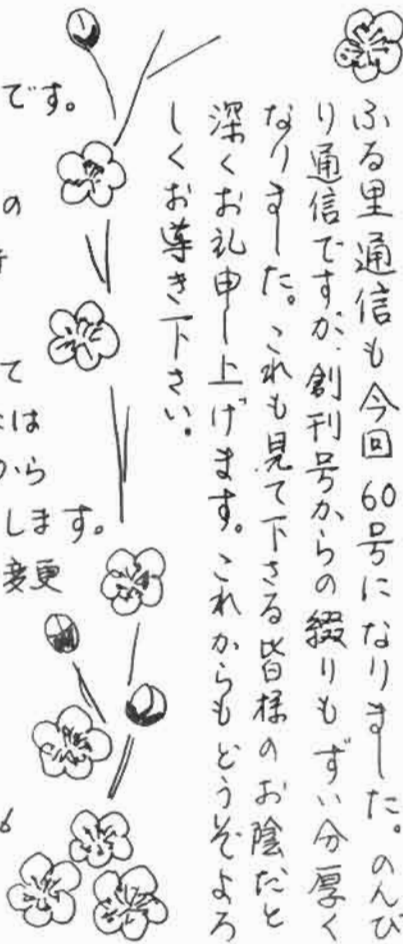 ふる里通信も今回60号になりました。のんび
り通信ですが、創刊号からの綴りもずい分厚く
なりました。これも見て下さる皆様のお陰だと
深くお礼申し上げます。これからもどうぞよろ
しくお導き下さい。
です。
の
て
は
から
します。
変更